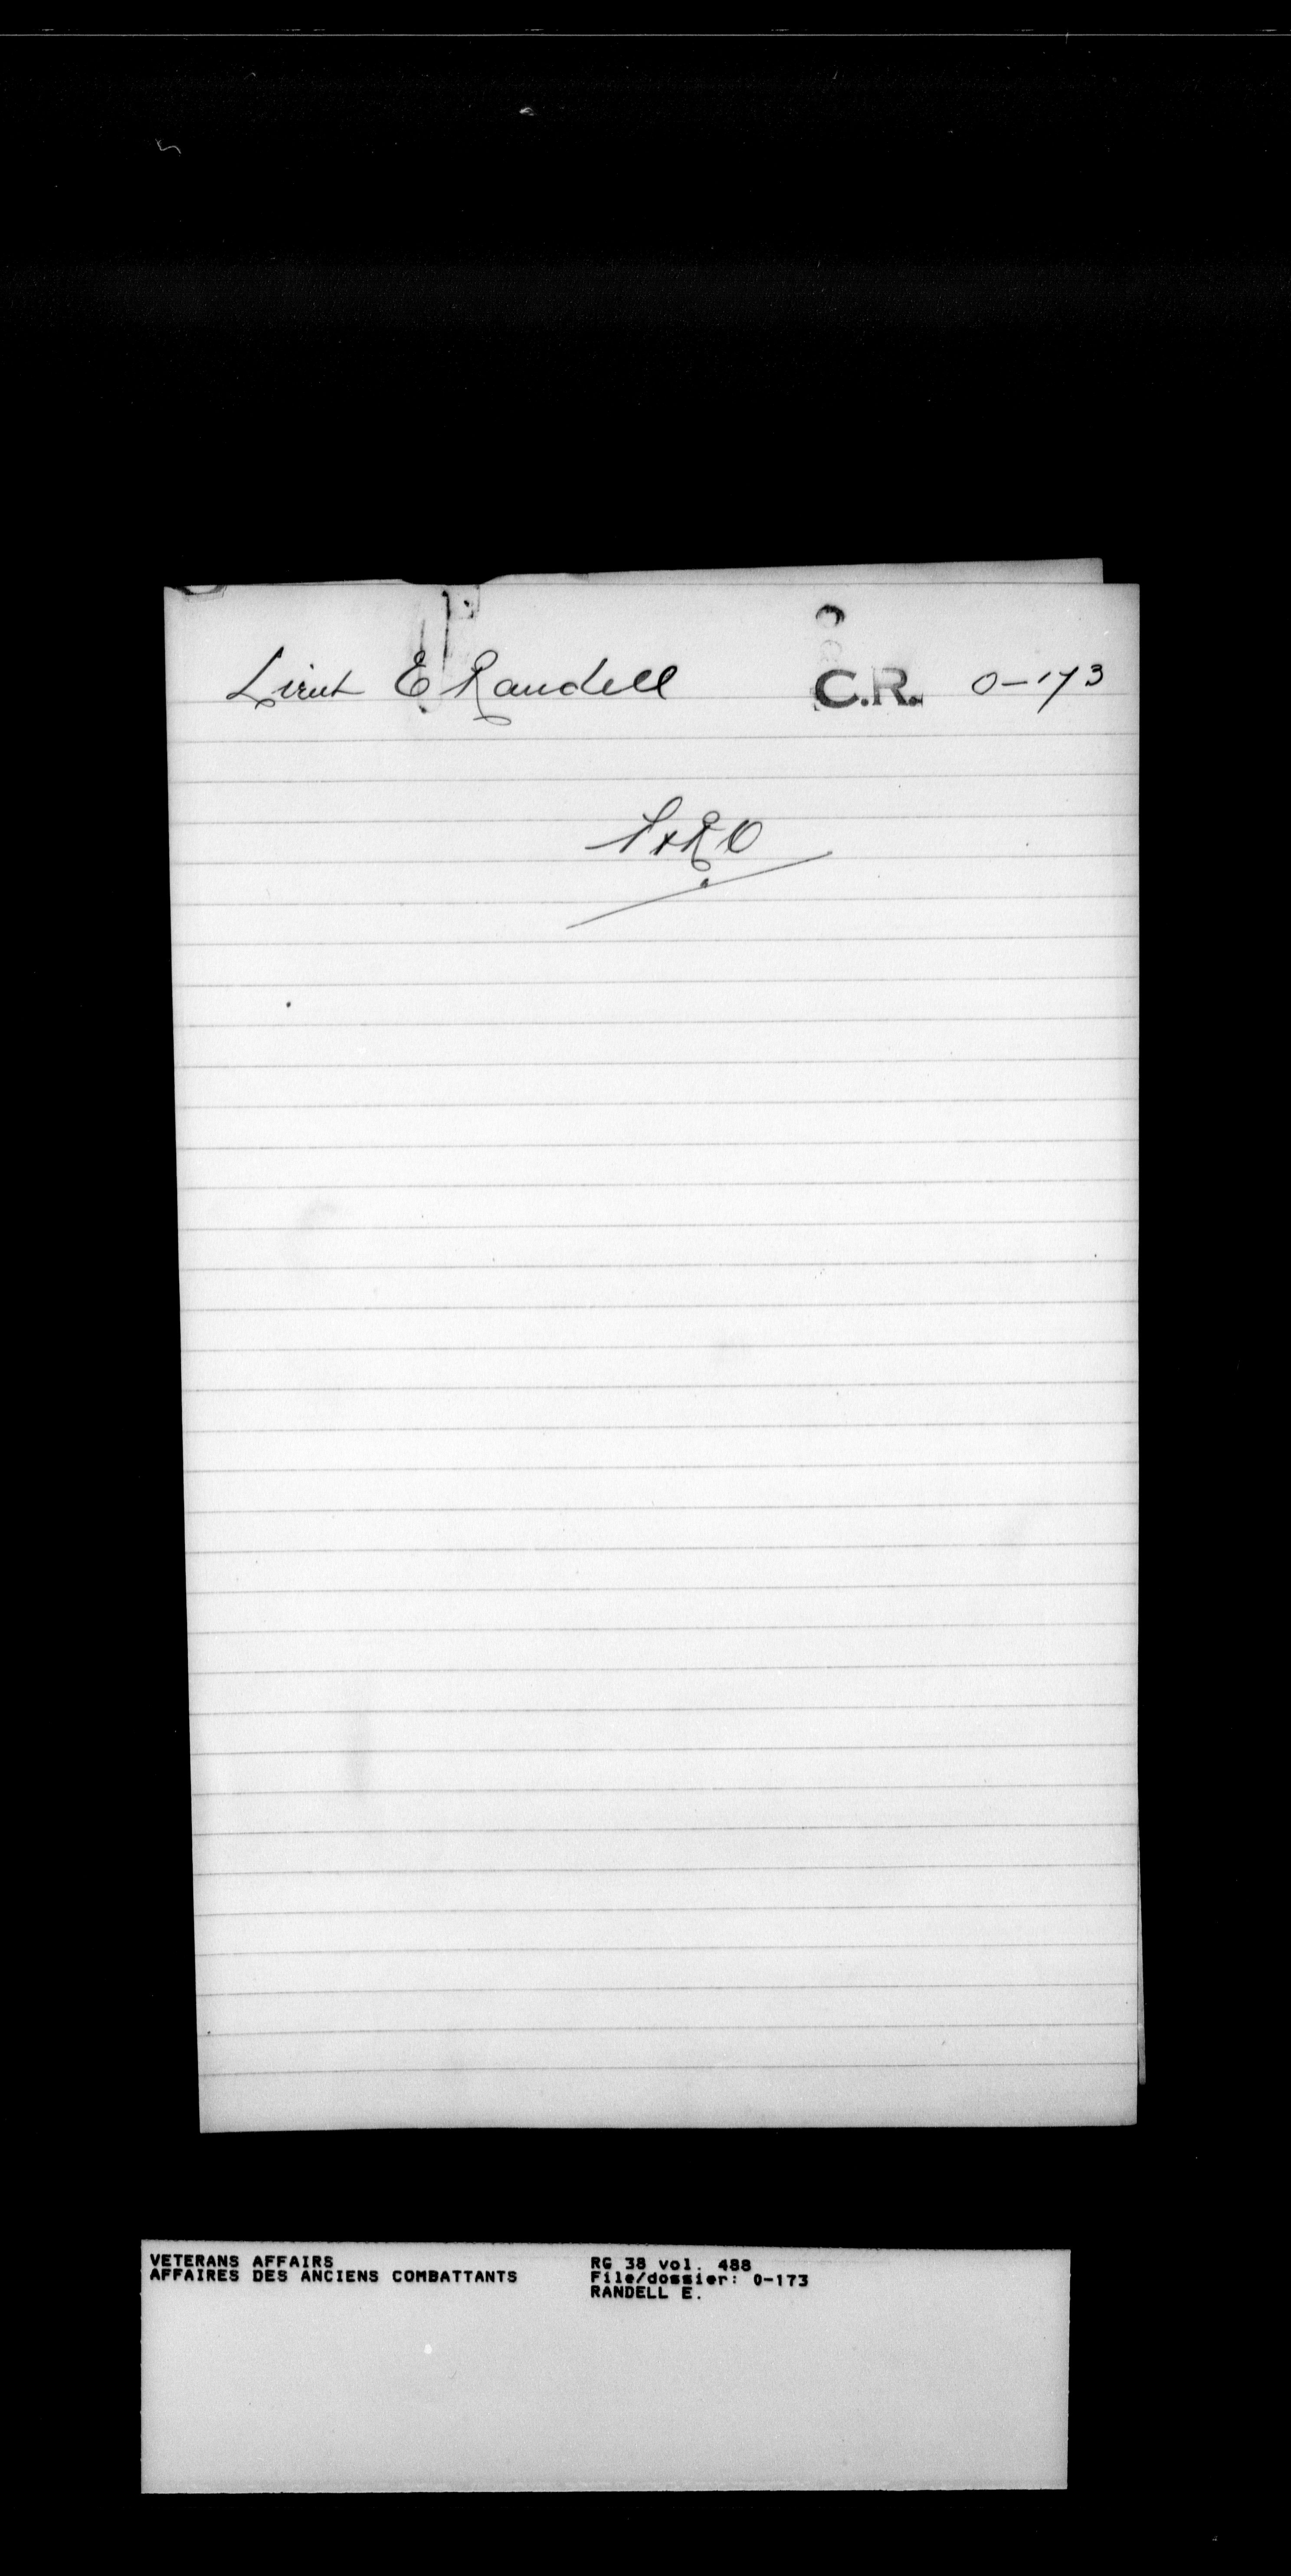 Lieut E Randell C.R. 0-173
P&RO
VETERANS AFFAIRS
AFFAIRES DES ANCIENS COMBATTANTS
RG 38 vol. 488
File/dossier: 0-173
RANDELL E.